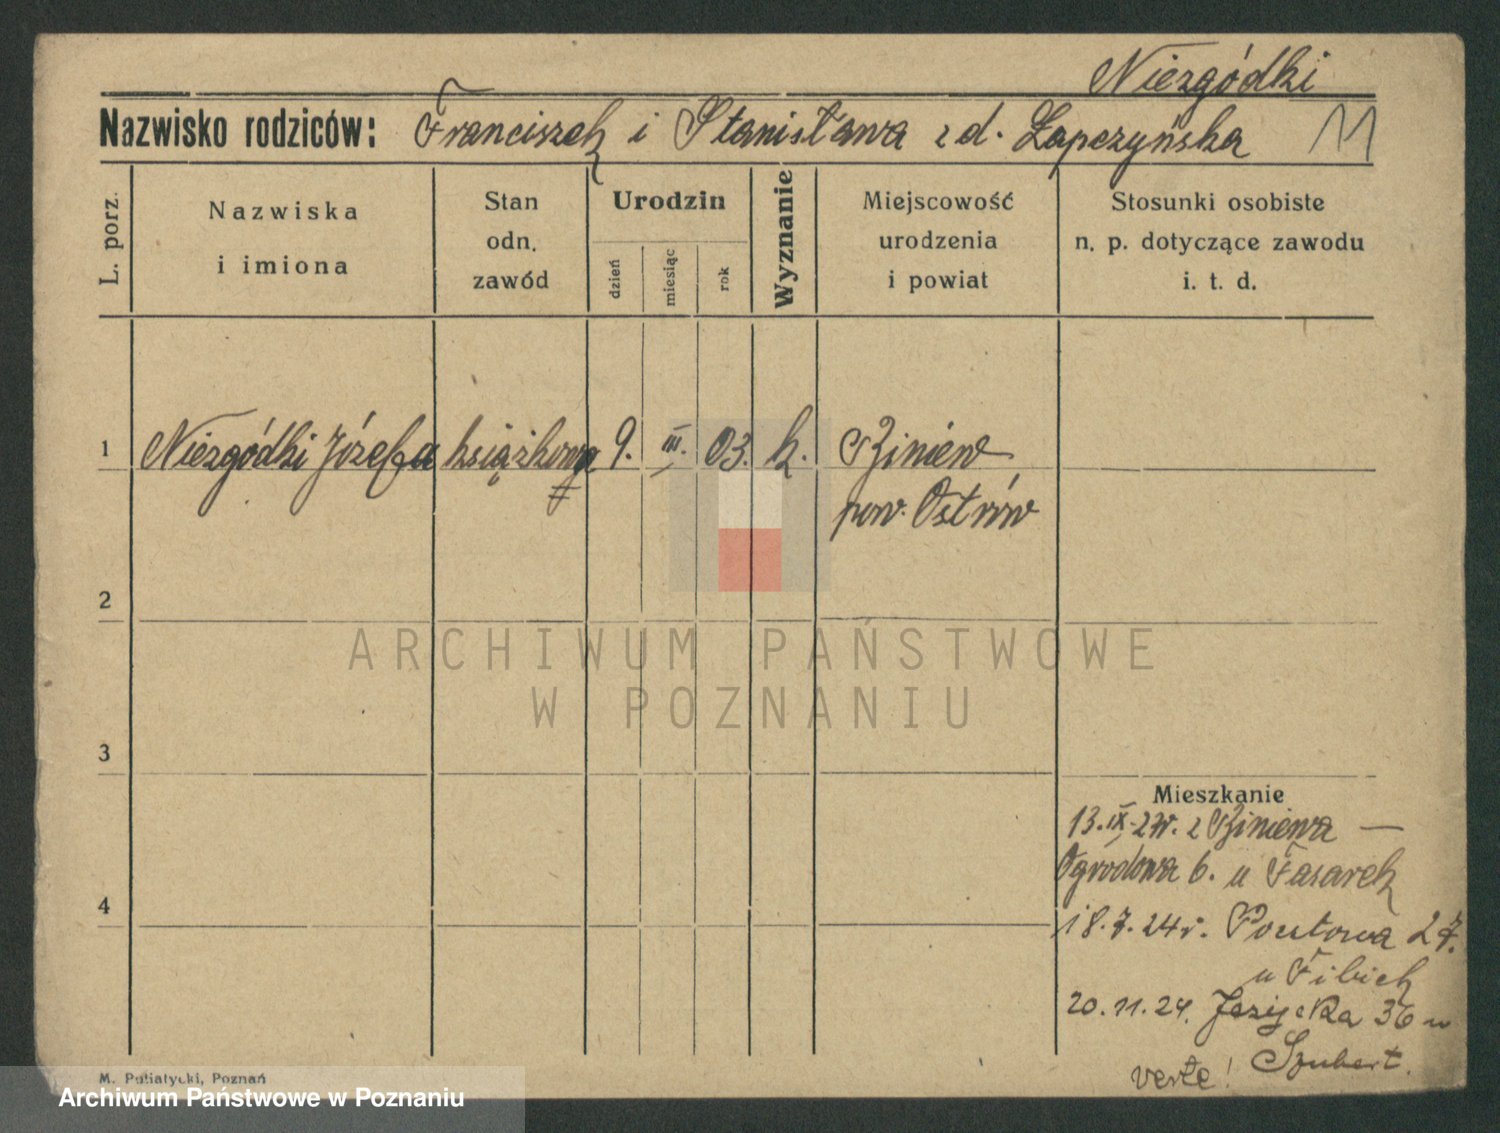 Niezgódki
Nazwisko rodziców: Franciszek i Stanisława z d. Łapczyńska 11
L. porz.
Nazwiska
i imiona
Stan
odn.
zawód
Urodzin
dzień
miesiąc
rok
Wyznanie
Miejscowość
urodzenia
i powiat
Stosunki osobiste
n. p. dotyczące zawodu
i. t. d.
1 Niezgódki Józefa książkowa 9. III. 03. k. Biniew
pow. Ostrów
2
ARCHIWUM PAŃSTWOWE
W POZNANIU
3
Mieszkanie
13. IX. z Biniewa —
Ogrodowa 6. u Tasarek
4
18.7.24r. Pocztowa 27.
u Fibich
20.11.24. Jeżycka 36 u
Szubert.
verte!
M. Putiatycki, Poznań
Archiwum Państwowe w Poznaniu